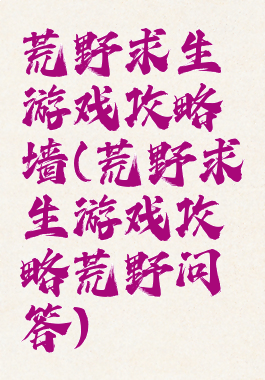 荒野求生
游戏攻略
墙(荒野求
生游戏攻
略荒野问
答)